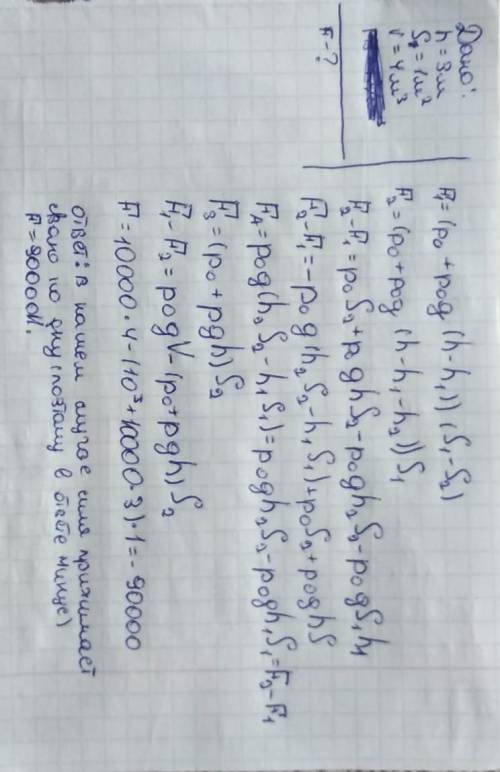 Дано:
h = 3м
S₂ = 1м²
V = 4м³
F - ?
F₁ = (p₀ + ρ₀g (h - h₁)) (S₁ - S₂)
F₂ = (p₀ + ρ₀g (h - h₁ - h₂)) S₁
F₂ - F₁ = p₀S₂ + ρ₀ghS₂ - ρ₀gh₂S₂ - ρ₀gS₁h₁
F₂ - F₁ = -ρ₀g(h₂S₂ - h₁S₁) + p₀S₂ + ρ₀ghS
F_A = ρ₀g(h₂S₂ - h₁S₁) = ρ₀gh₂S₂ - ρ₀gh₁S₁ = F₂ - F₁
F₃ = (p₀ + ρgh) S₂
F₁ - F₂ = ρ₀gV - (p₀ + ρgh) S₂
F = 10000·4 - (10⁵ + 10000·3)·1 = - 90000
ответ: в нашем случае сила прижимает
сваю по дну (поэтому в ответе минус)
F = 90000Н.